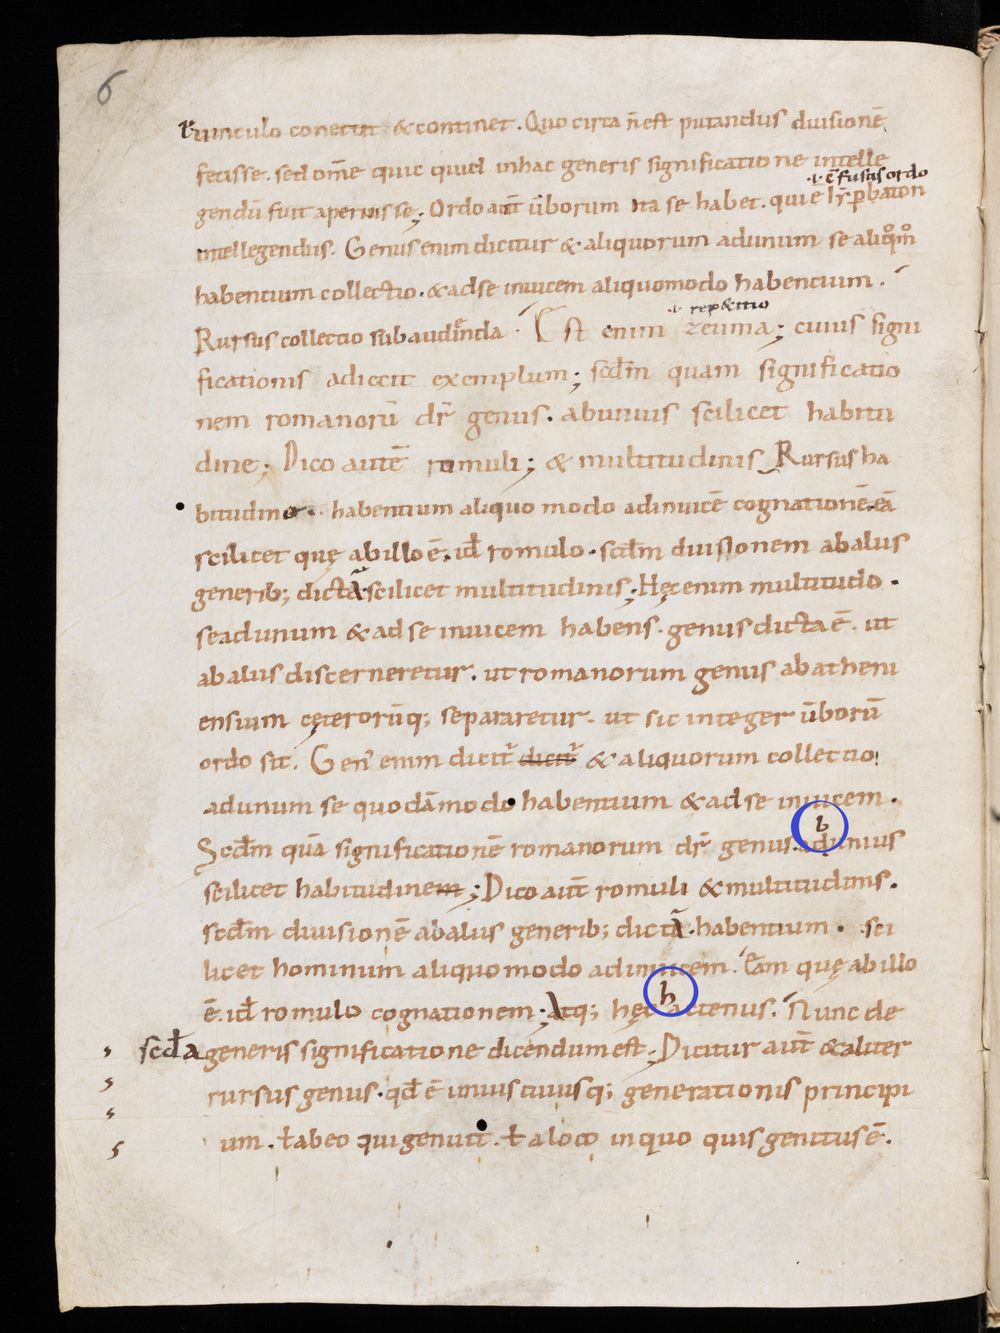 6
runculo conectit & continet. Quo circa n̄ est putandus diuisionē
fecisse. sed om̄e quic quid inhac generis significatione intelle
.i. cōfusus ordo
gendū fuit aperuisse; Ordo aut̄ ūborum ita se habet. qui ē hẏꝑbaton
intellegendus. Genus enim dicitur & aliquorum adunum se aliqͦmͦ
habentium collectio. & adse inuicem aliquomodo habentium.
.i. rep&itio
Rursus collectio subaudienda. Est enim zeuma; cuius signi
ficationis adiecit exemplum; scd̄m quam significatio
nem romanorū dr̄ genus. abunius scilicet habitu
dine; Dico autē romuli; & multitudinis Rursus ha
bitudine. habentium aliquo modo adinuicē cognationē. eā
scilicet quę abillo ē. id̄ romulo. scd̄m diuisionem abalus
generib; dictā scilicet multitudinis; Hęc enim multitudo.
seadunum & ad se inuicem habens. genus dicta ē. ut
abalus discerneretur. ut romanorum genus abatheni
ensium cęterorūq; separaretur. ut sic integer ūborū
ordo sit. Gen' enim dicit̄ dicit̄ & aliquorum collectio
adunum se quodāmodo habentium & adse inuicem.
b
Scd̄m quā significationē romanorum dr̄ genus. adunius
scilicet habitudinem; Dico aut̄ romuli & multitudinis.
scd̄m diuisionē abalus generib; dictā. habentium. sci
licet hominum aliquomodo adinuicem. Eam quę abillo
h
ē. id̄ romulo cognationem; Atq; hęc actenus. Nunc de
scd̄a generis significatione dicendum est; Dicitur aut̄ & aliter
rursus genus. qd̄ ē unius cuiusq; generationis principi
um. ł abeo qui genuit. ł a loco inquo quis genitus ē.